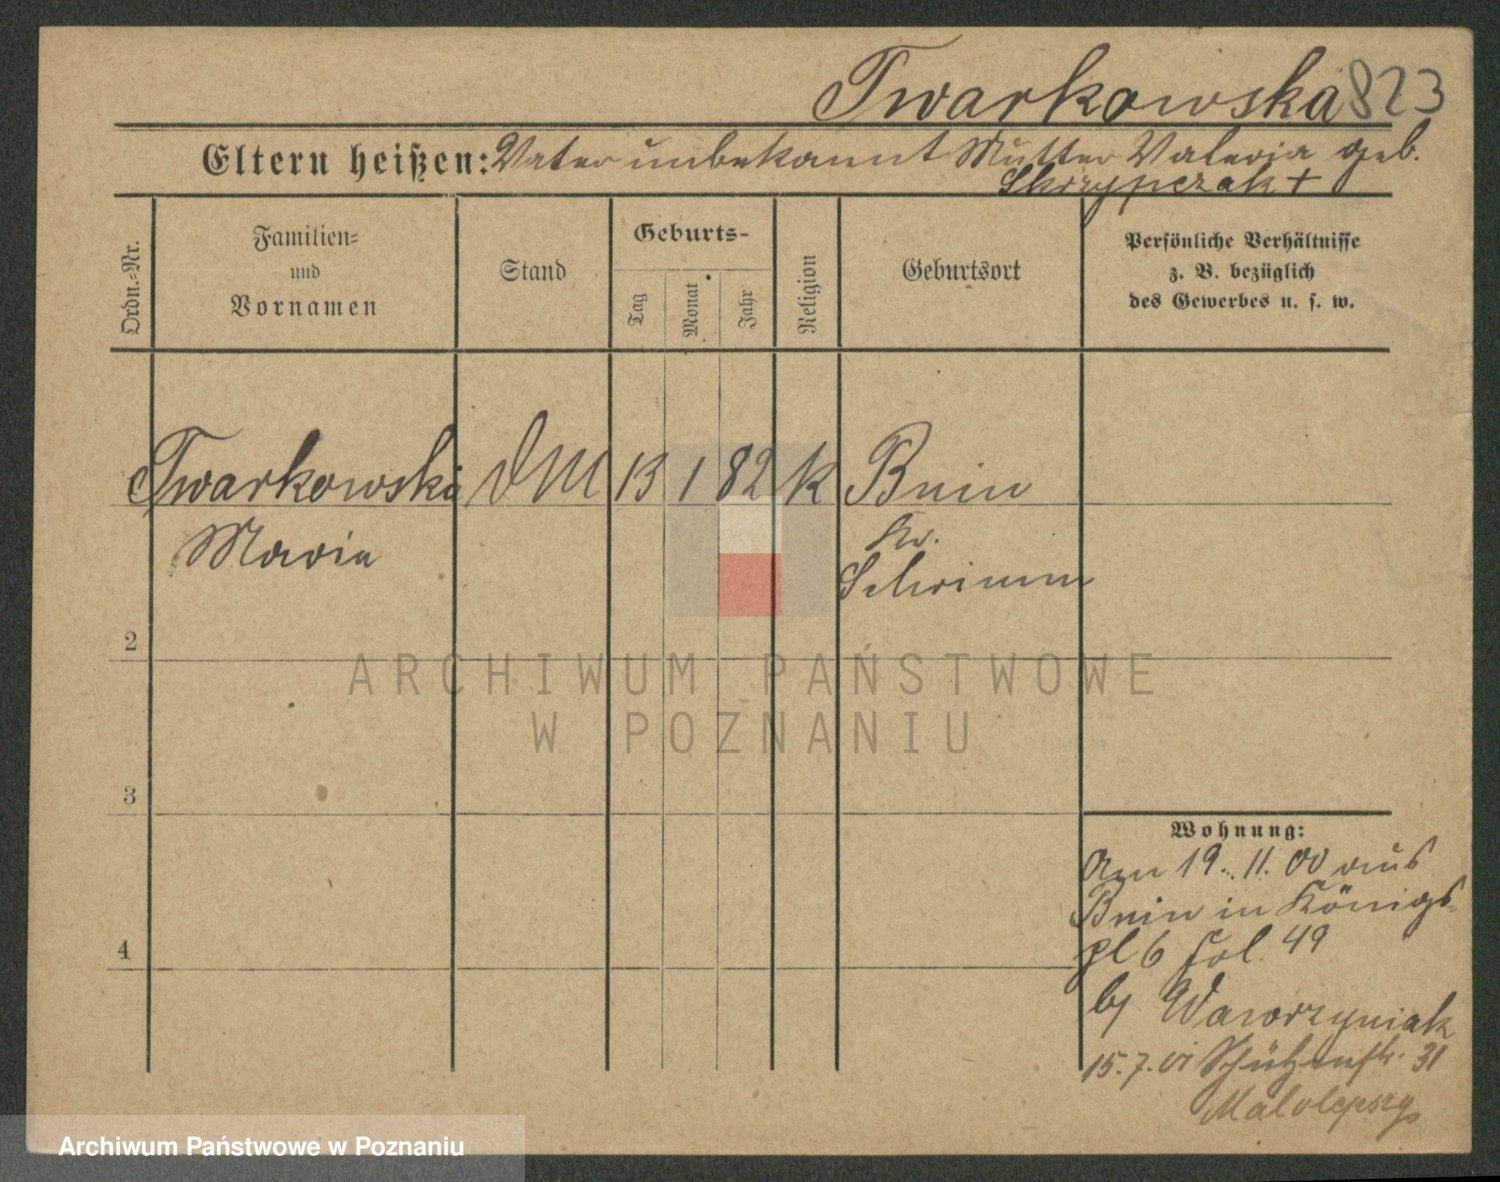 Twarkowska 823
Eltern heißen: Vater unbekannt Mutter Valeria geb.
Skrzypczak +
Ordn.-Nr.
Familien-
und
Vornamen
Stand
Geburts-
Tag
Monat
Jahr
Religion
Geburtsort
Persönliche Verhältnisse
z. B. bezüglich
des Gewerbes u. s. w.
Twarkowska DM 13 1 82 k Bnin
Maria
Kr.
Schrimm
2
3
4
Wohnung:
Am 19. 11. 00 aus
Bnin in Königs-
pl 6 fol. 49
by Wawrzyniak
15. 7. 01 Schützenstr. 31
Malolepszy
ARCHIWUM PAŃSTWOWE
W POZNANIU
Archiwum Państwowe w Poznaniu